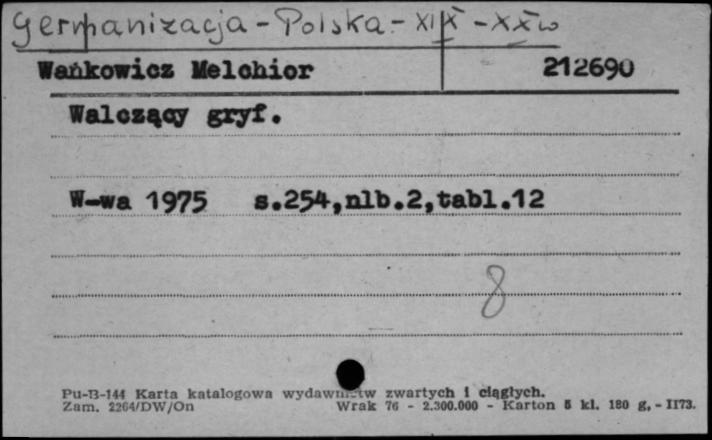 germanizacja - Polska - XIX - XX w
Wańkowicz Melchior 212690
Walczący gryf.
W-wa 1975 s.254,nlb.2,tabl.12
8
Pu-B-144 Karta katalogowa wydawnictw zwartych i ciągłych.
Zam. 2264/DW/On Wrak 76 - 2.300.000 - Karton 5 kl. 180 g, - II73.